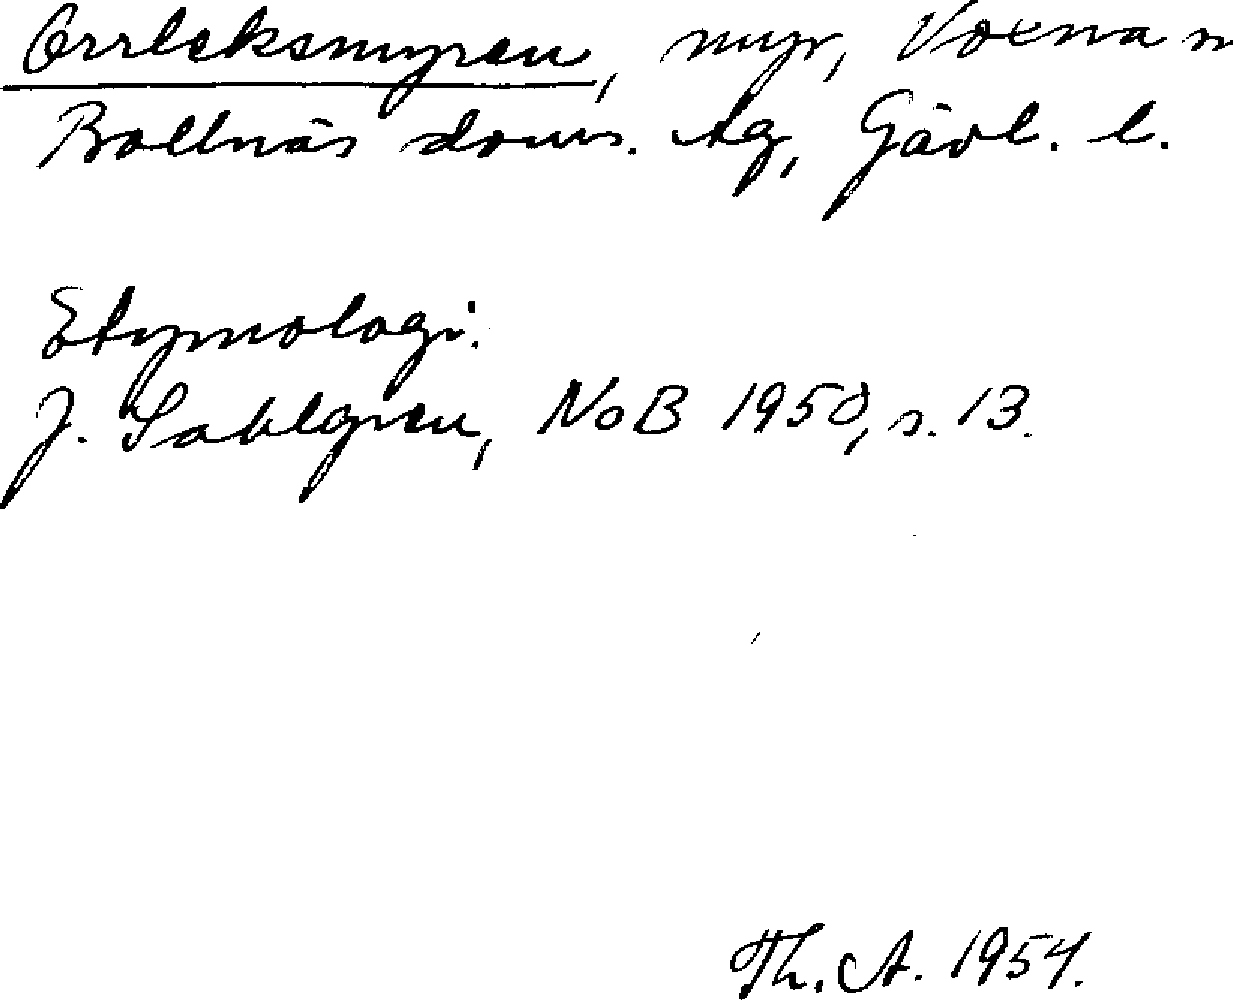 Orrleksmyren, myr, Voxna
Bollnäs doms. tg, Gävl. l.
Etymologi.
J. Sahlgren, NoB 1950, s. 13.
Th. A. 1954.